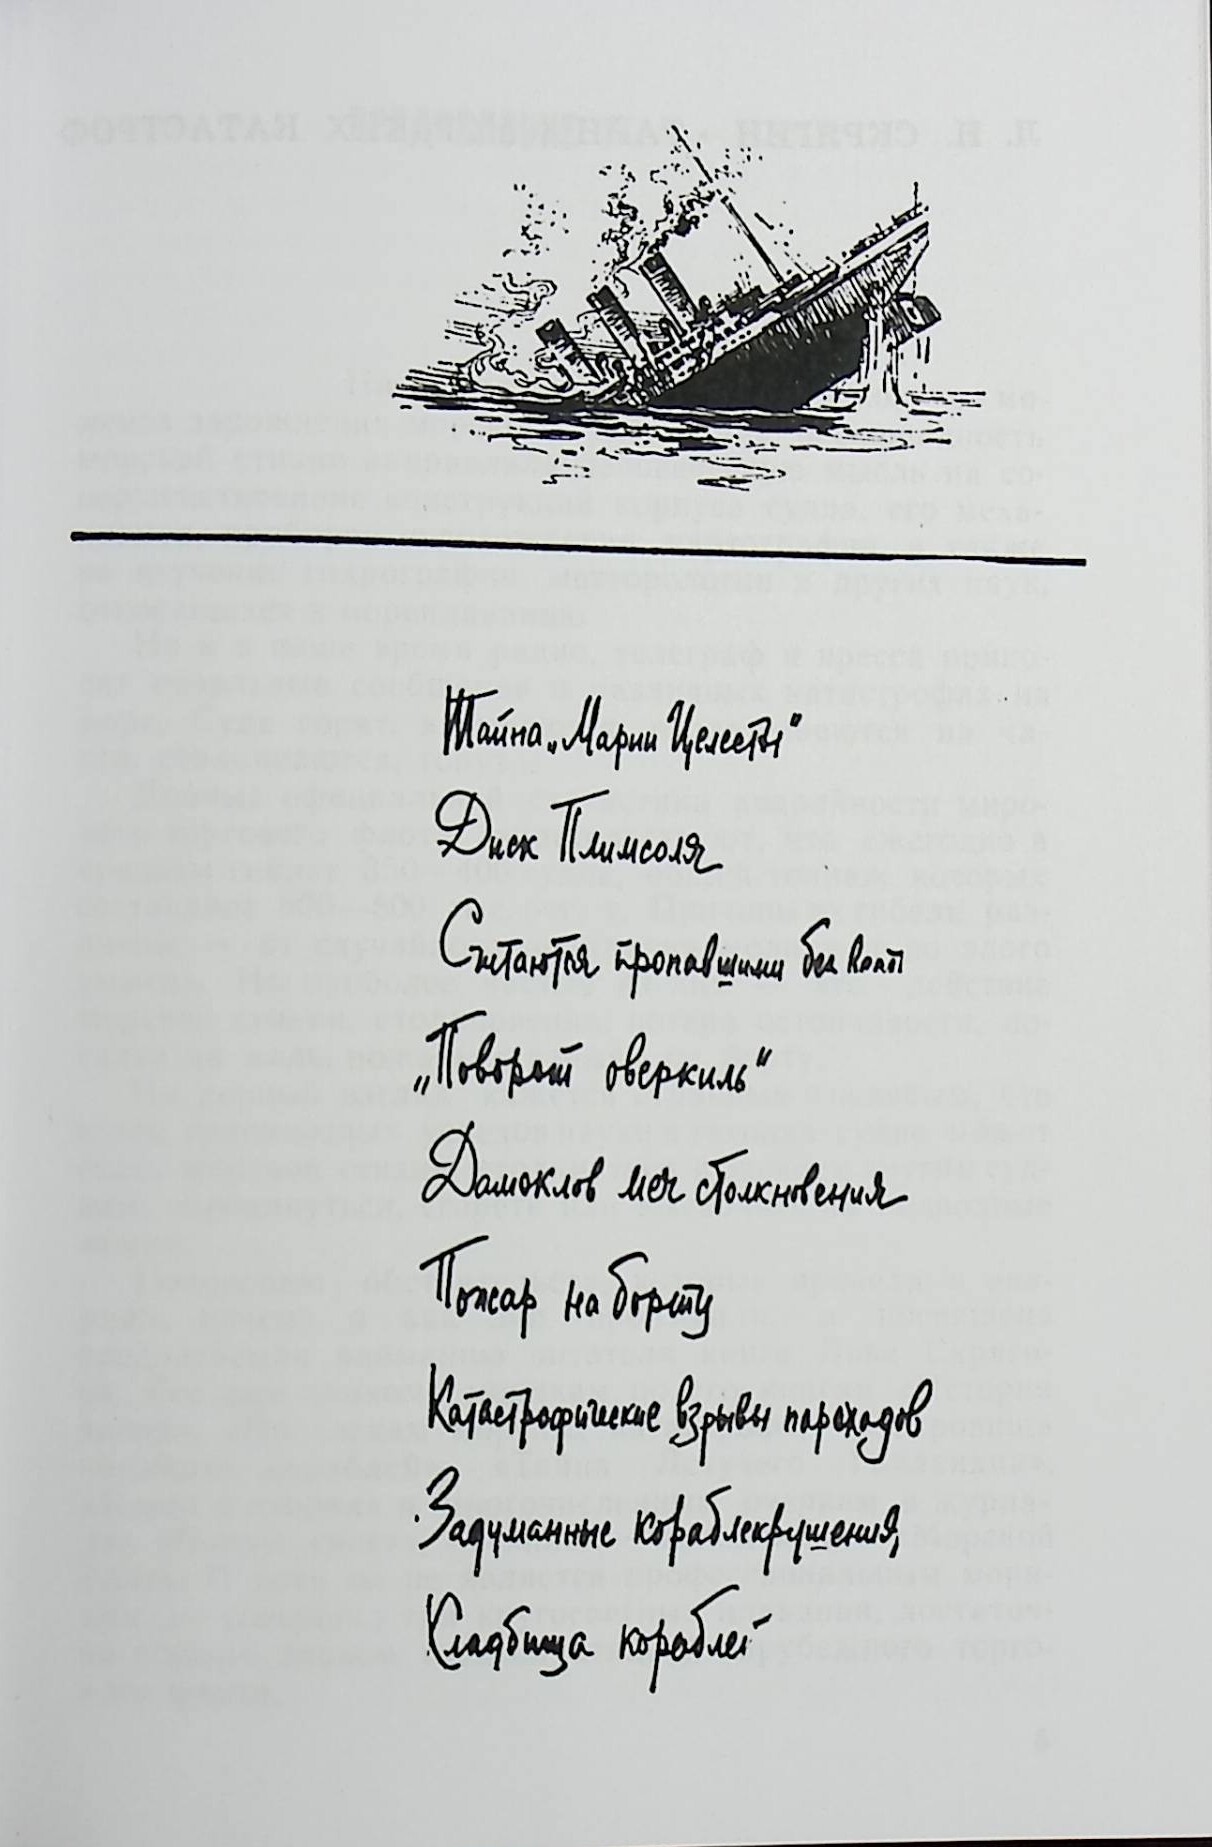 Тайна „Марии Целесты"
Диск Плимсоля
Считаются пропавшими без вести
„Поворот оверкиль"
Дамоклов меч столкновения
Пожар на борту
Катастрофические взрывы пароходов
Задуманные кораблекрушения
Кладбища кораблей